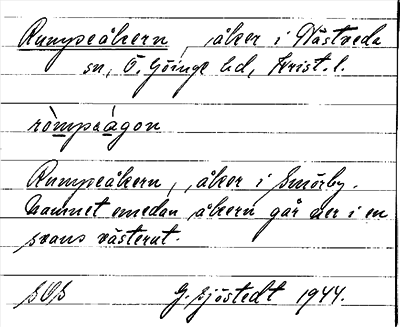 Rumpeåkern, åker i Västveda
sn, Ö. Göinge hd, Krist. l.
ròmpaágon
Rumpeåkern, åker i Smörby.
Namnet emedan åkern går ner i en
svans västerut.
SOS G. Sjöstedt 1944.